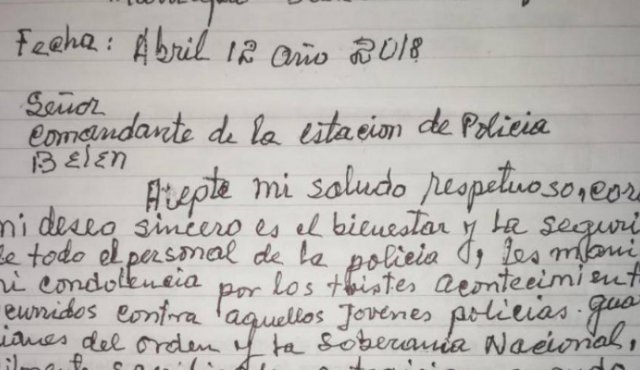 Fecha: Abril 12 año 2018
Señor
comandante de la estacion de Policia
BElEn
Acepte mi saludo respetuoso, cor
mi deseo sincero es el bienestar y la seguri
de todo el personal de la policia, les mani
mi condolencia por los tristes acontecimient
eunidos contra aquellos Jovenes policias. gua
ianes del orden y la Soberania Nacional,